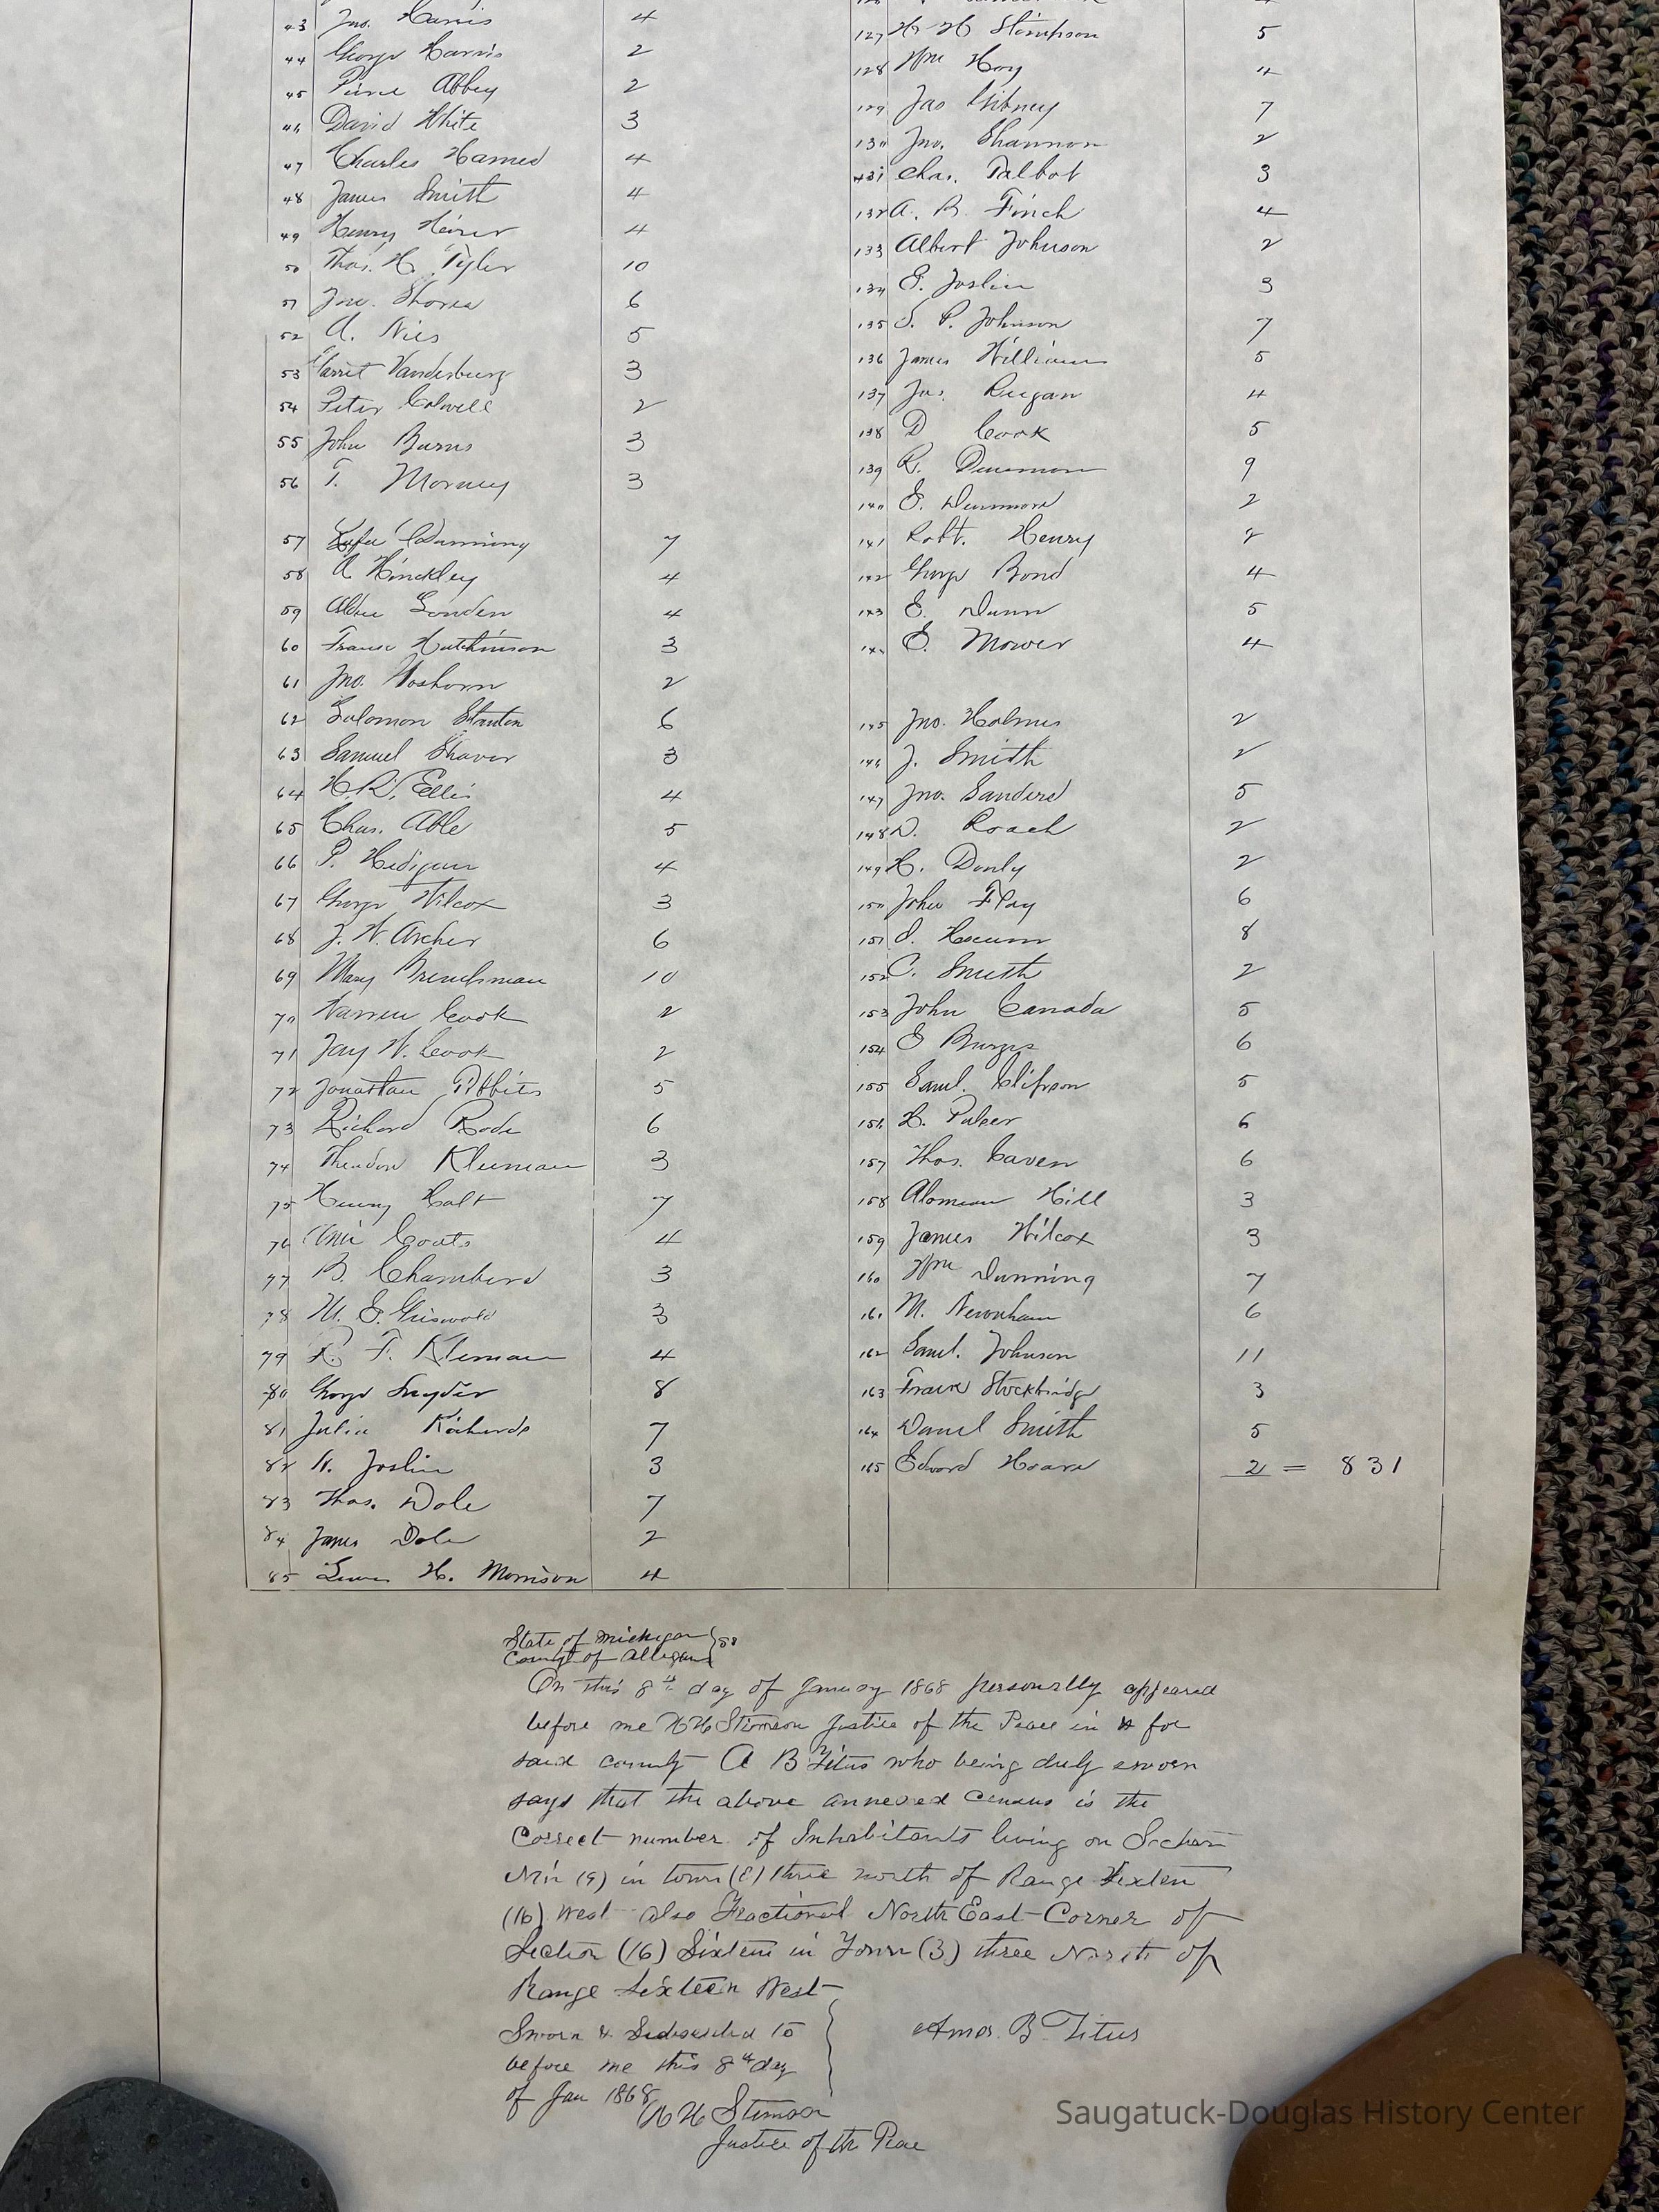 43 Jno. Harris 4
44 George Harris 2
45 Abbey 2
46 David White 3
47 Charles Harned 4
48 James Smith 4
49 Henry 4
50 Thos. H. Tyler 10
51 Jno. Shorea 6
52 A. Nies 5
53 Garret Vanderburg 3
54 Peter Colwell 2
55 John Burns 3
56 T. Morney 3
57 Dunning 7
58 A Hinckley 4
59 Londen 4
60 Hutchinson 3
61 Jno. Voshorn 2
62 Solomon Stanton 6
63 Samuel Shaver 3
64 H. R. Ellis 4
65 Chas. Able 5
66 P. Hedigan 4
67 George Wilcox 3
68 J. W. Archer 6
69 Mary 10
70 Warren Cook 2
71 Jay W. Cook 2
72 Jonathan Tibbits 5
73 Richard Rode 6
74 Theodore Kleeman 3
75 Henry Holt 7
76 Coats 4
77 B. Chambers 3
78 M. E. Griswold 3
79 R. F. Kleman 4
80 George Snyder 8
81 Julia Richards 7
82 W. Joslin 3
83 Thos. Dole 7
84 James Dole 2
85 H. Morrison 4
127 H. H. Stimpson 5
128 Wm Hoy 4
129 Jas Gibney 7
130 Jno. Shannon 2
131 Chas. Talbot 3
132 A. B. Finch 4
133 Albert Johnson 2
134 E. Joslin 3
135 S. P. Johnson 7
136 James Williams 5
137 Jas. Reugan 4
138 D Cook 5
139 R. Densmore 9
140 E. Dunmore 2
141 Robt. Henry 2
142 George Bond 4
143 E. Dunn 5
144 E. Mower 4
145 Jno. Holmes 2
146 J. Smith 2
147 Jno. Sanders 5
148 D. Roach 2
149 H. Donly 2
150 John Flay 6
151 8
152 C. Smith 2
153 John Canada 5
154 E Burges 6
155 Saml. Clifson 5
156 H. Palser 6
157 Thos. Caven 6
158 Hill 3
159 James Wilcox 3
160 Wm Dunning 7
161 M. Newnham 6
162 Saml. Johnson 11
163 Frank Stockbridge 3
164 Daniel Smith 5
165 Edward Hoare 2 = 831
State of Michigan } ss
County of Allegan
On this 8th day of January 1868 personally appeared
before me H H Stimson Justice of the Peace in & for
said county A B Titus who being duly sworn
says that the above annexed Census is the
Correct number of Inhabitants living on Section
Nin (9) in town (3) three north of Range Sixten
(16) West also Fractional North East Corner of
Section (16) Sixteen in Town (3) three North of
Range Sixteen West
Sworn & Subscribed to
before me this 8th day
of Jan 1868
Amos. B. Titus
H H Stimson
Justice of the Peace
Saugatuck-Douglas History Center